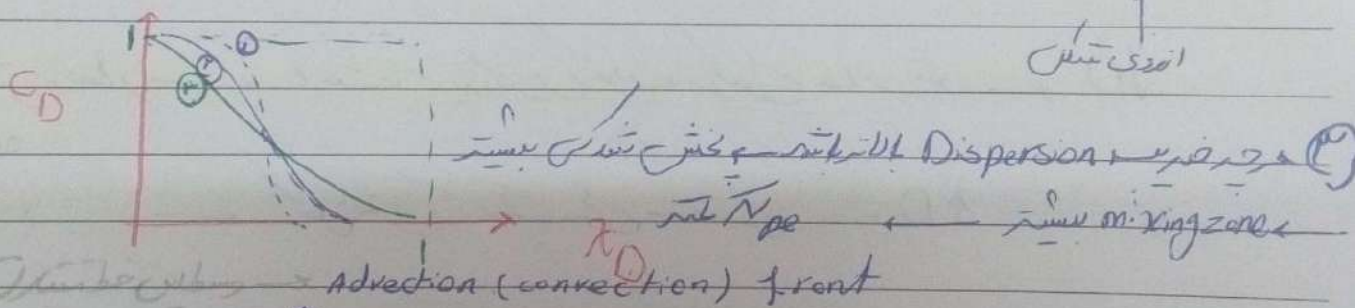 انرژی تشکیل
1
C_D
① ② ③
③ هرچه ضریب Dispersion بالاتر باشد → پخش شدگی بیشتر
→ mixing zone بیشتر ← N_pe کمتر
x_D
1
Advection (convection) front